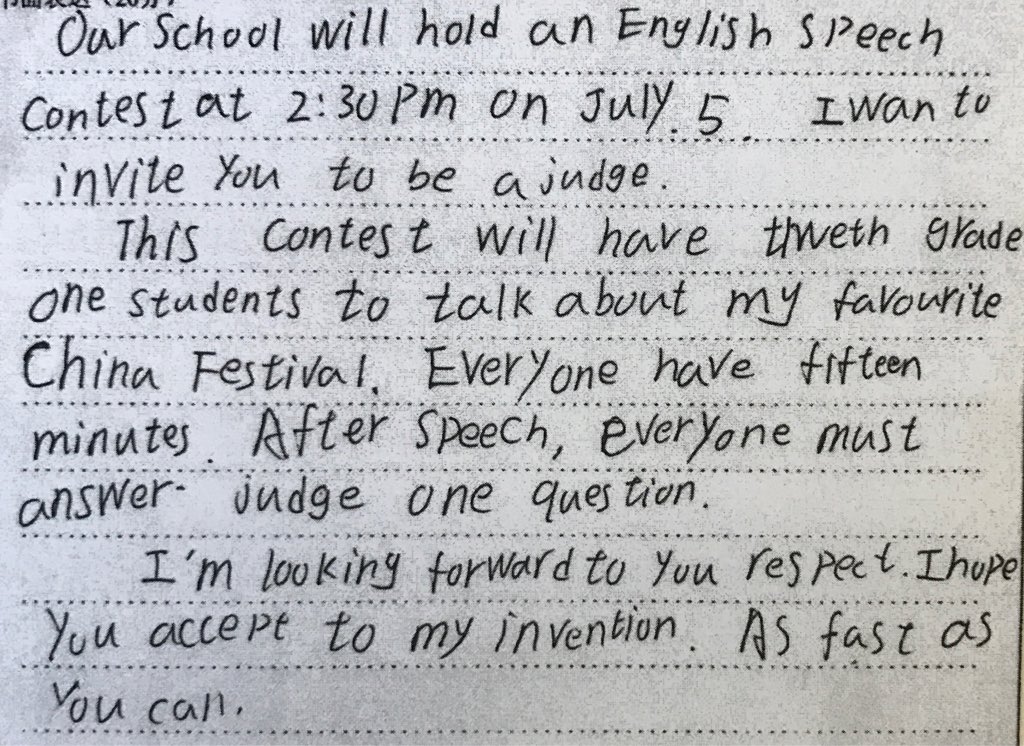 Our School will hold an English speech
Contest at 2:30 Pm on July. 5. I want to
invite you to be a judge.
This Contest will have thweth grade
one students to talk about my favourite
China Festival. Everyone have fifteen
minutes. After speech, everyone must
answer judge one question.
I'm looking forward to you respect. I hope
you accept to my invention. As fast as
you can.